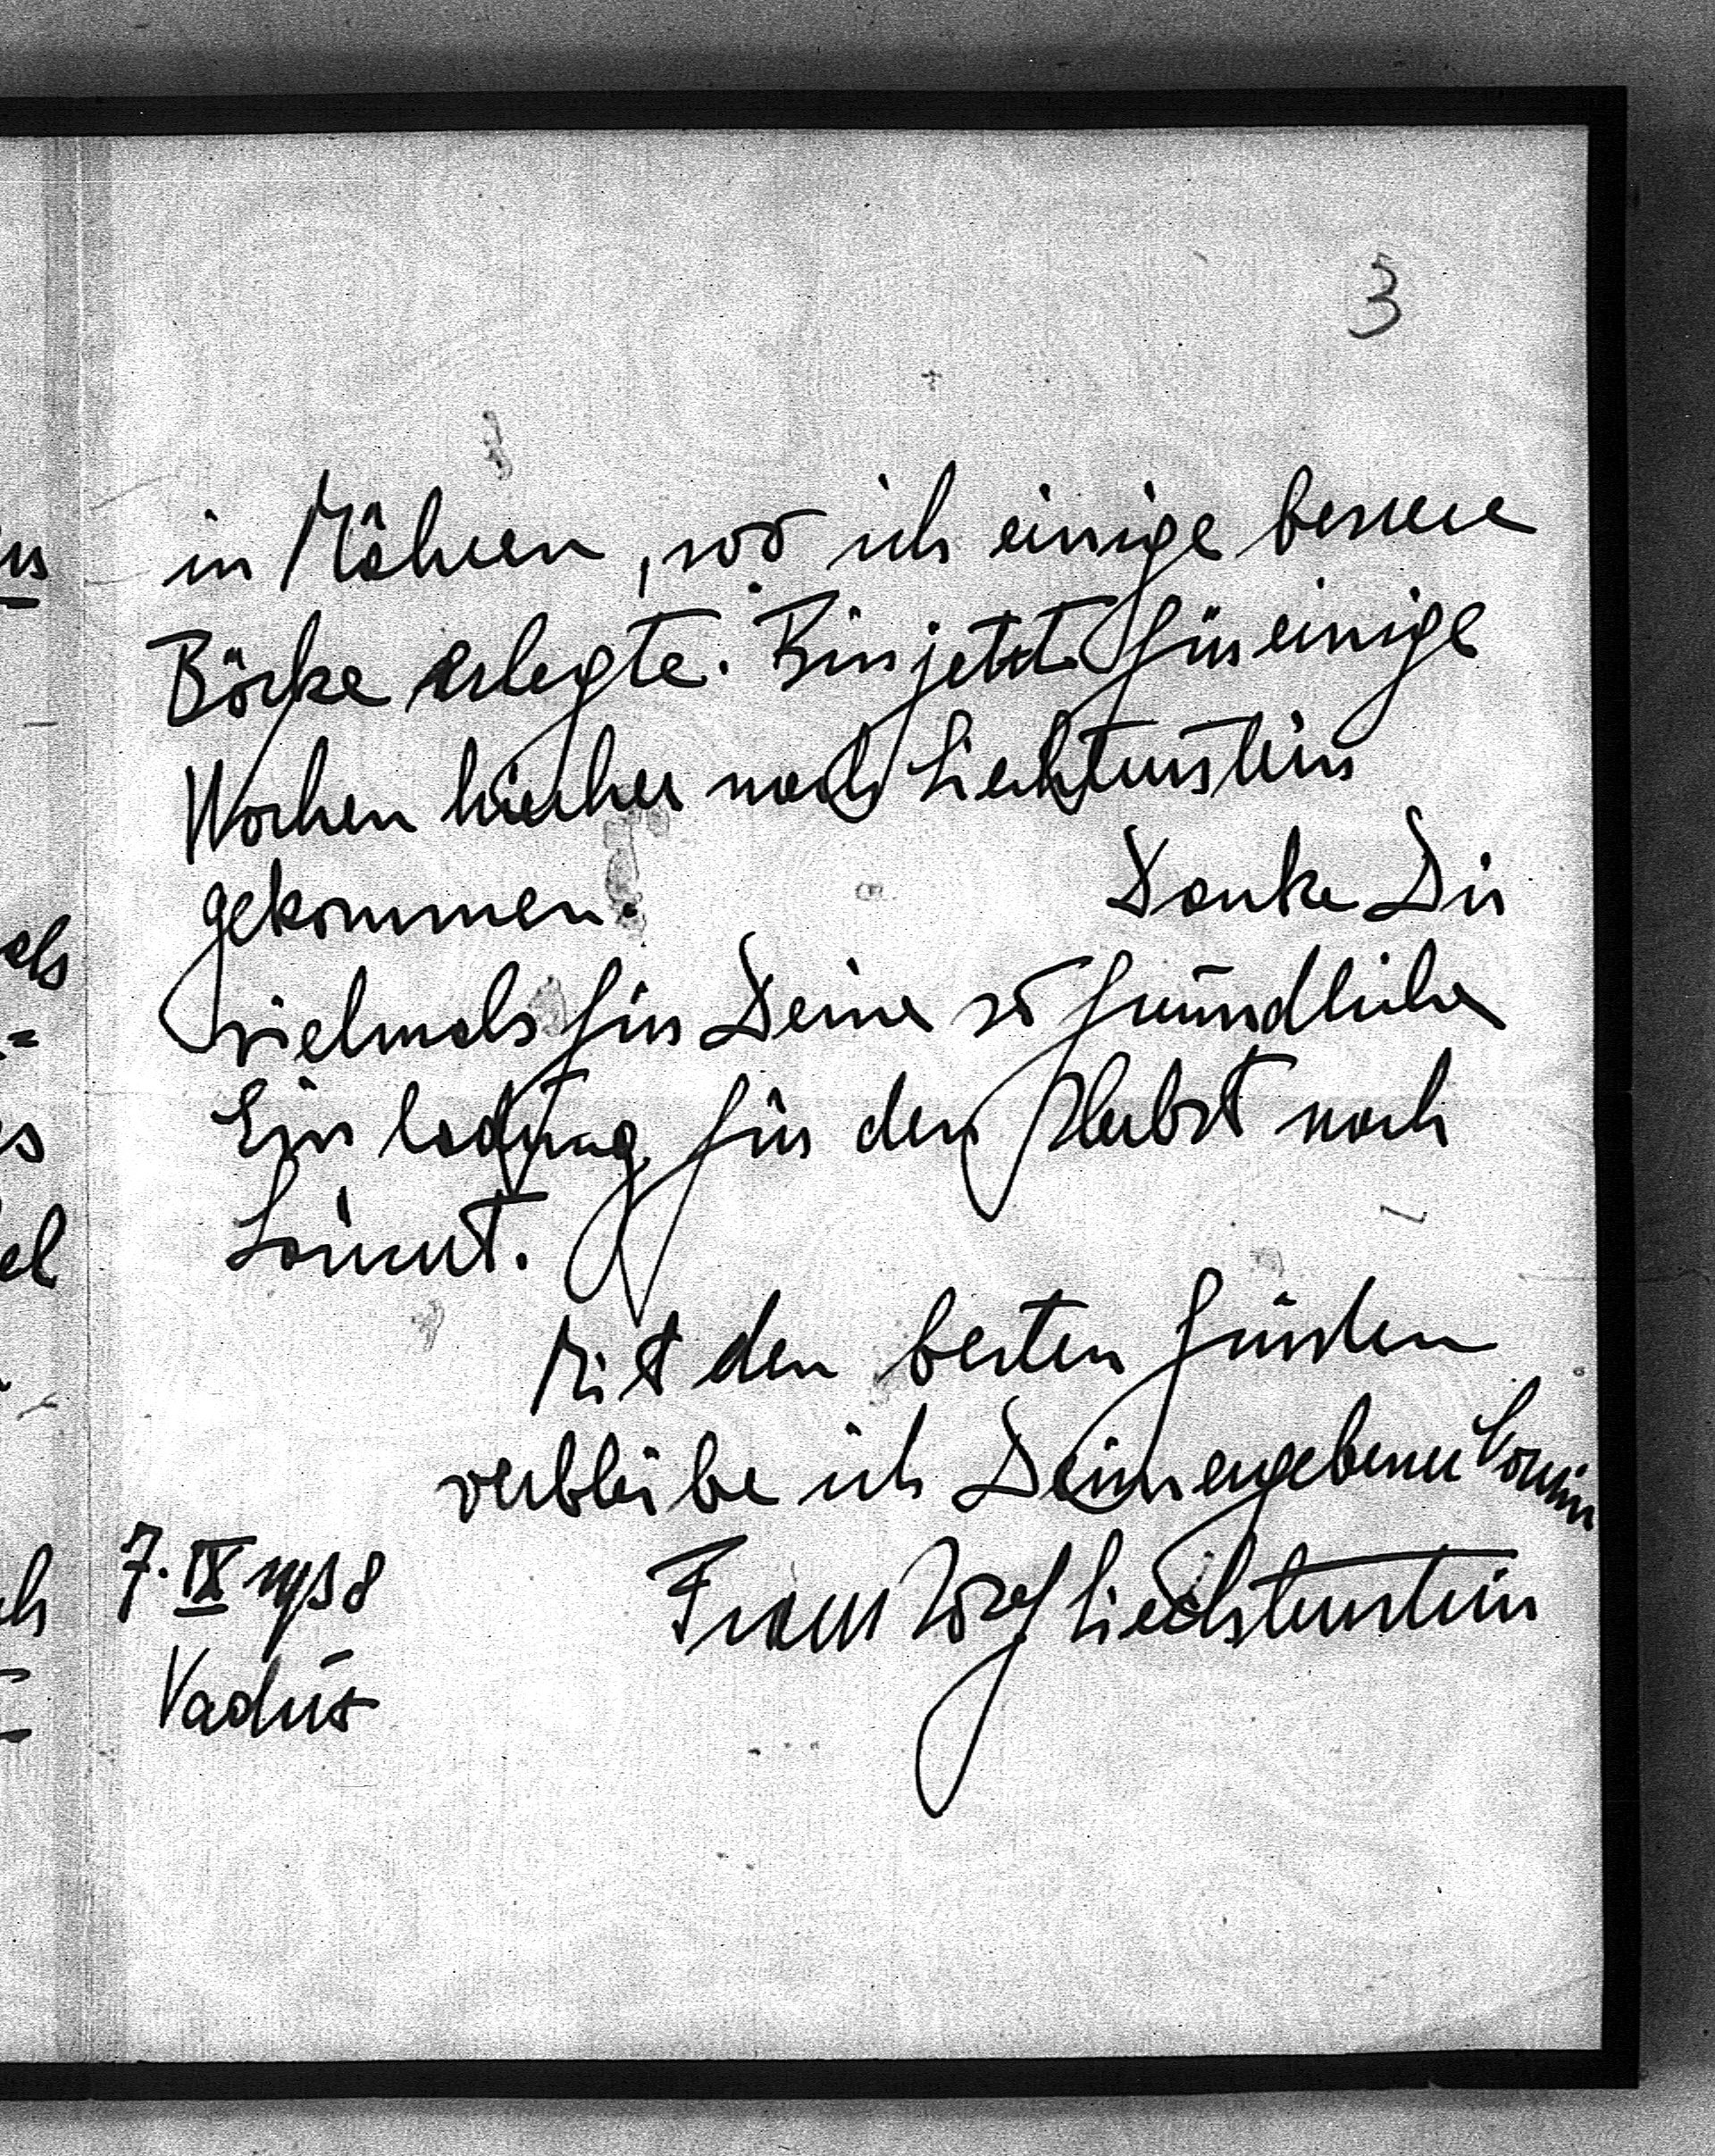 3
in Mähren, wo ich einige bessere
Böcke erlegte. Bin jetzt für einige
Wochen hierher nach Liechtenstein
gekommen. Danke Dir
vielmals für Deine so freundliche
Einladung für den Herbst nach
Lancut.
Mit den besten Grüssen
verbleibe ich Dein ergebener Cousin
7. IX 1938 Franz Josef Liechtenstein
Vaduz